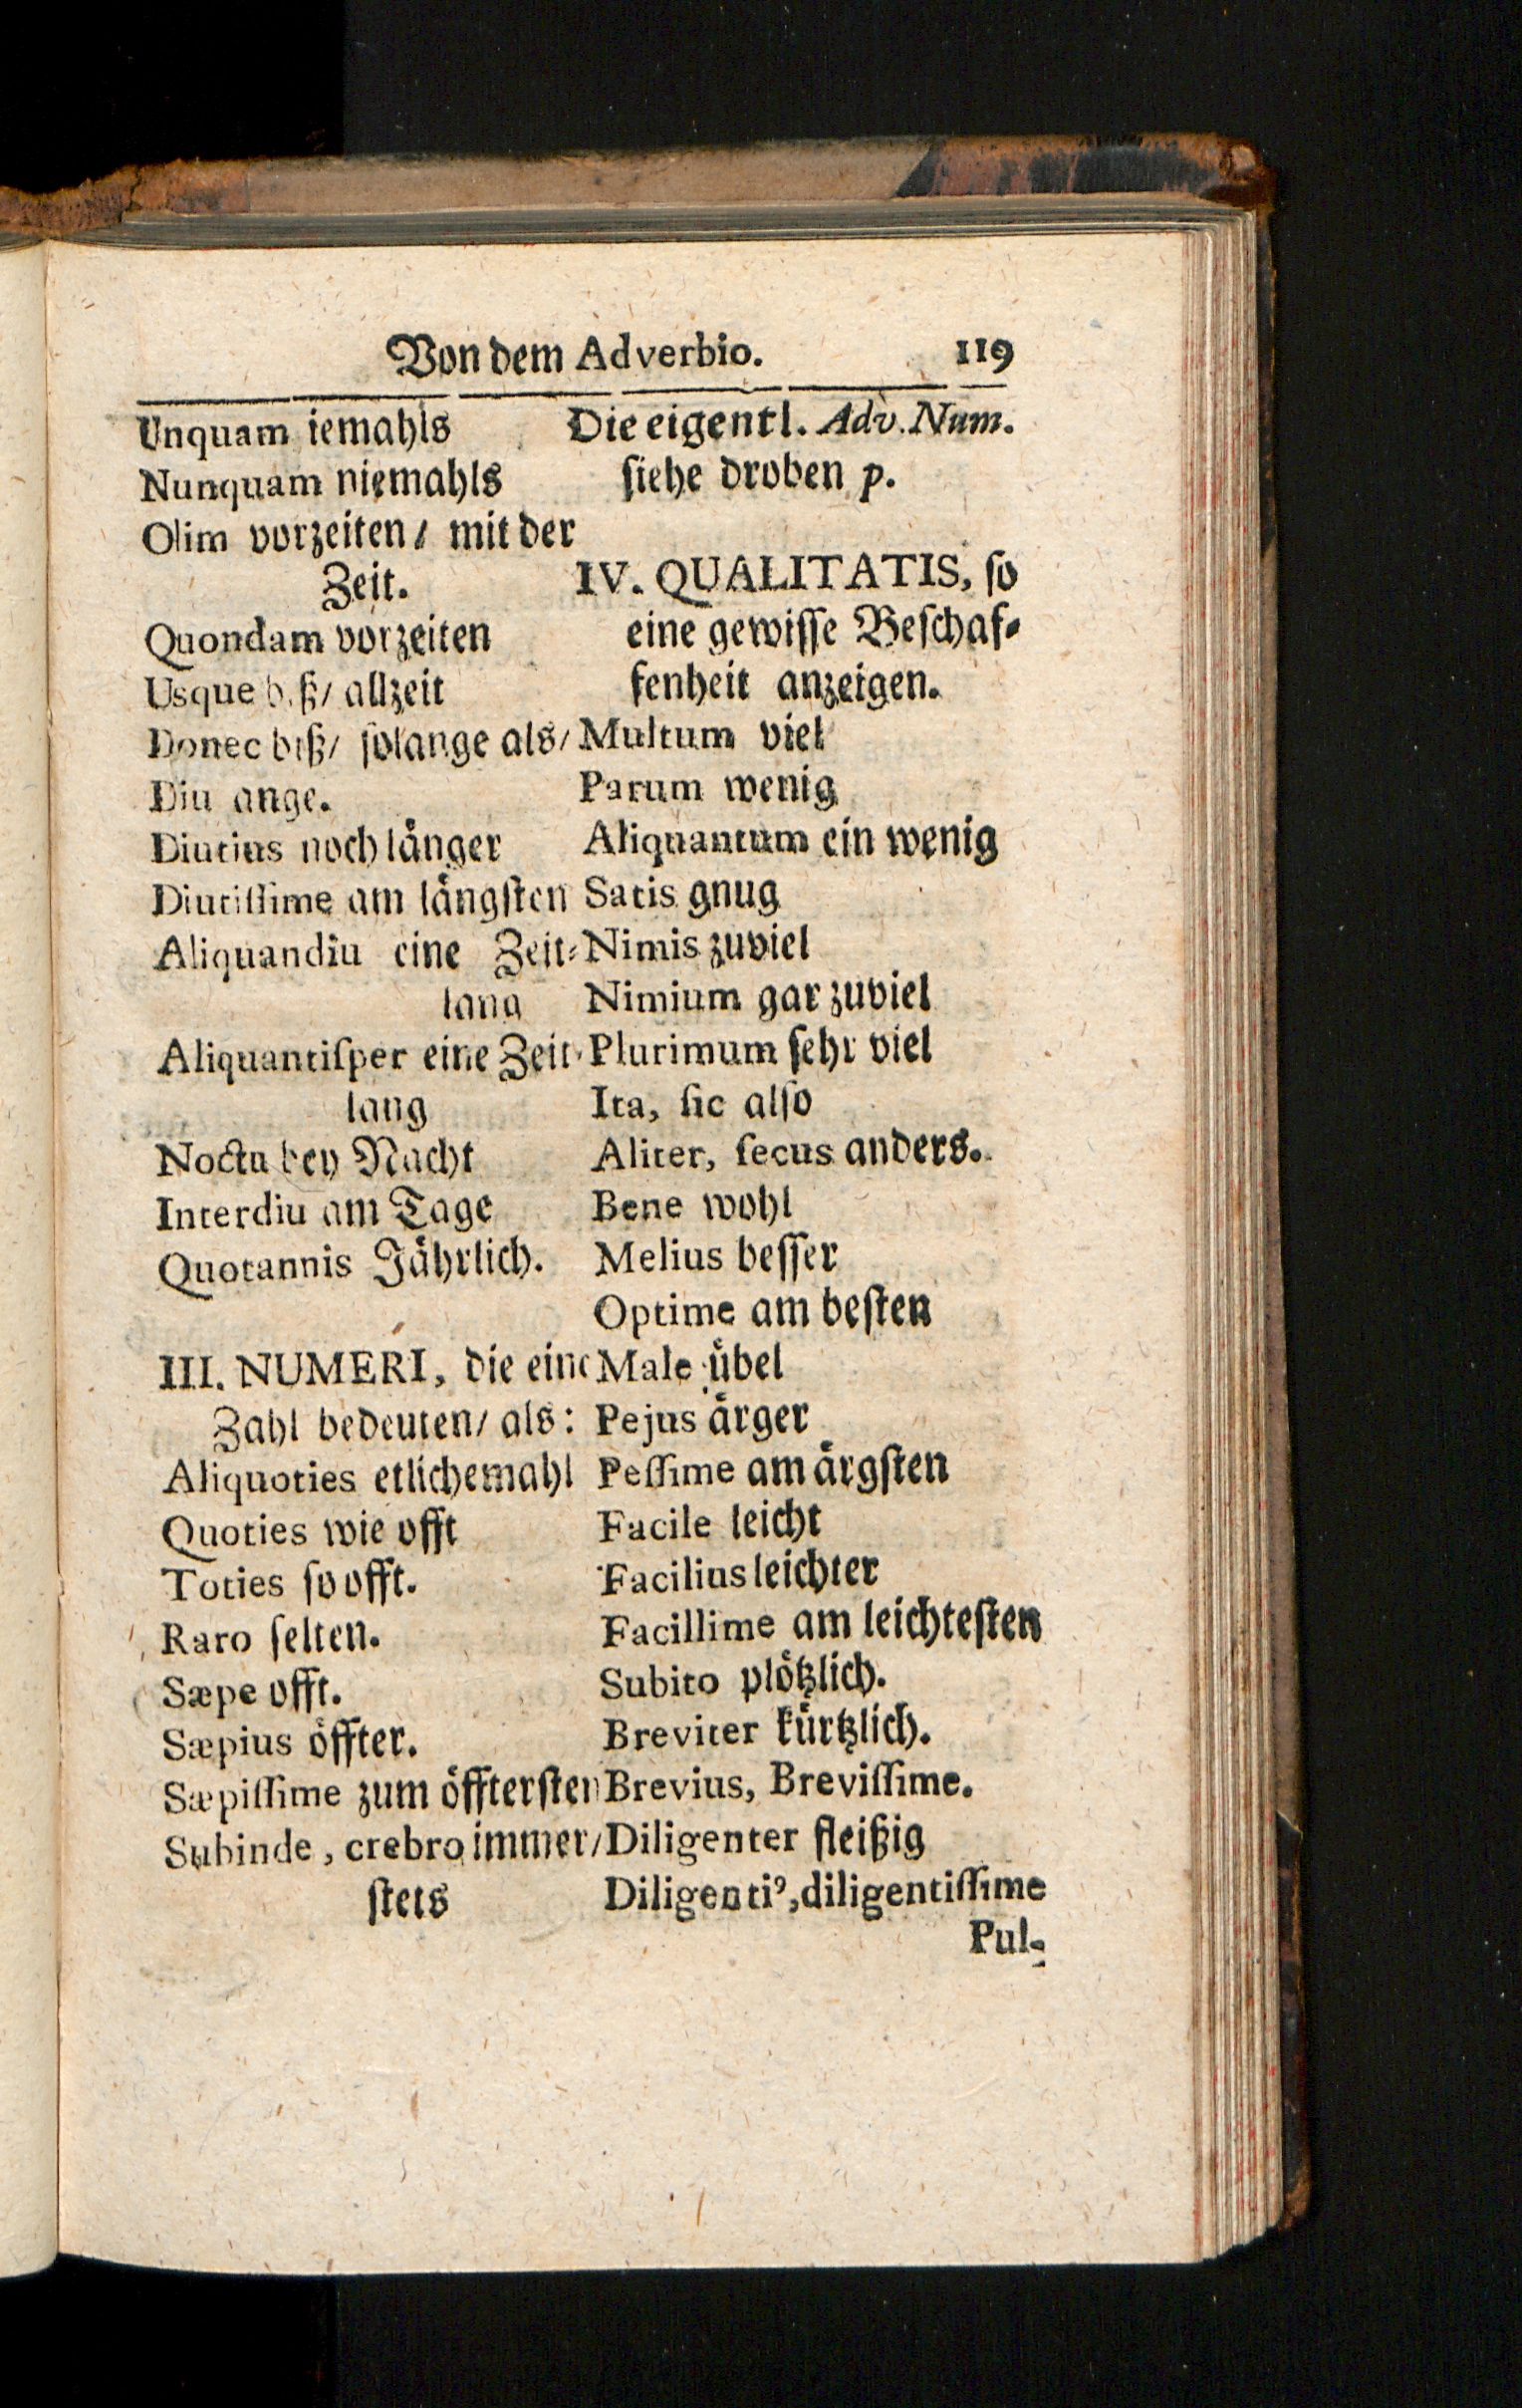 Von dem Adverbio. 119
Unquam iemahls
Nunquam niemahls
Olim vorzeiten / mit der
Zeit.
Quondam vorzeiten
Usque b.ß / allzeit
Donec biß / solange als /
Diu ange.
Diutius noch länger
Diutiſſime am längſten
Aliquandiu eine Zeit-
lang
Aliquantiſper eine Zeit-
lang
Noctu bey Nacht
Interdiu am Tage
Quotannis Jährlich.
III. NUMERI, die eine
Zahl bedeuten / als:
Aliquoties etlichemahl
Quoties wie offt
Toties ſo offt.
Raro ſelten.
Sæpe offt.
Sæpius öffter.
Sæpiſſime zum öffterſten
Subinde, crebro immer /
ſtets
Die eigentl. Adv. Num.
ſiehe droben p.
IV. QUALITATIS, ſo
eine gewiſſe Beſchaf-
fenheit anzeigen.
Multum viel
Parum wenig
Aliquantum ein wenig
Satis gnug
Nimis zuviel
Nimium gar zuviel
Plurimum ſehr viel
Ita, ſic alſo
Aliter, ſecus anders.
Bene wohl
Melius beſſer
Optime am beſten
Male übel
Pejus ärger
Peſſime am ärgſten
Facile leicht
Facilius leichter
Facillime am leichteſten
Subito plötzlich.
Breviter kürtzlich.
Brevius, Breviſſime.
Diligenter fleißig
Diligentiꝰ, diligentiſſime
Pul-